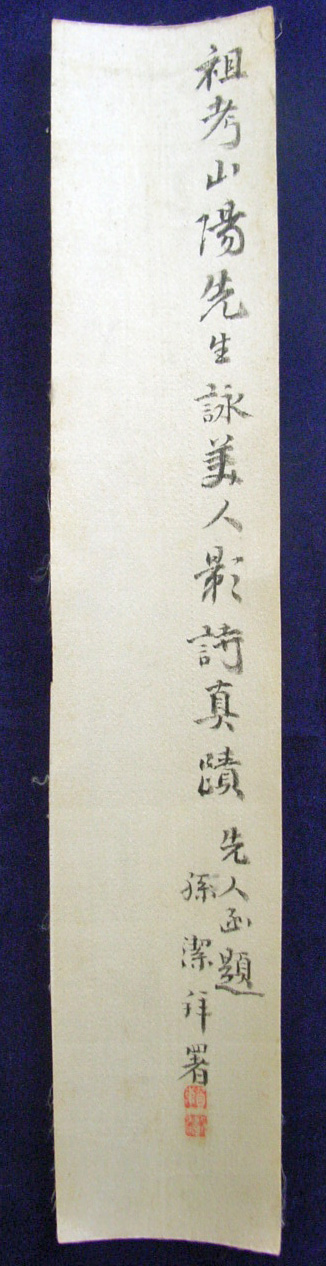 祖考山陽先生詠美人影詩真蹟
先人函題
孫潔拜署